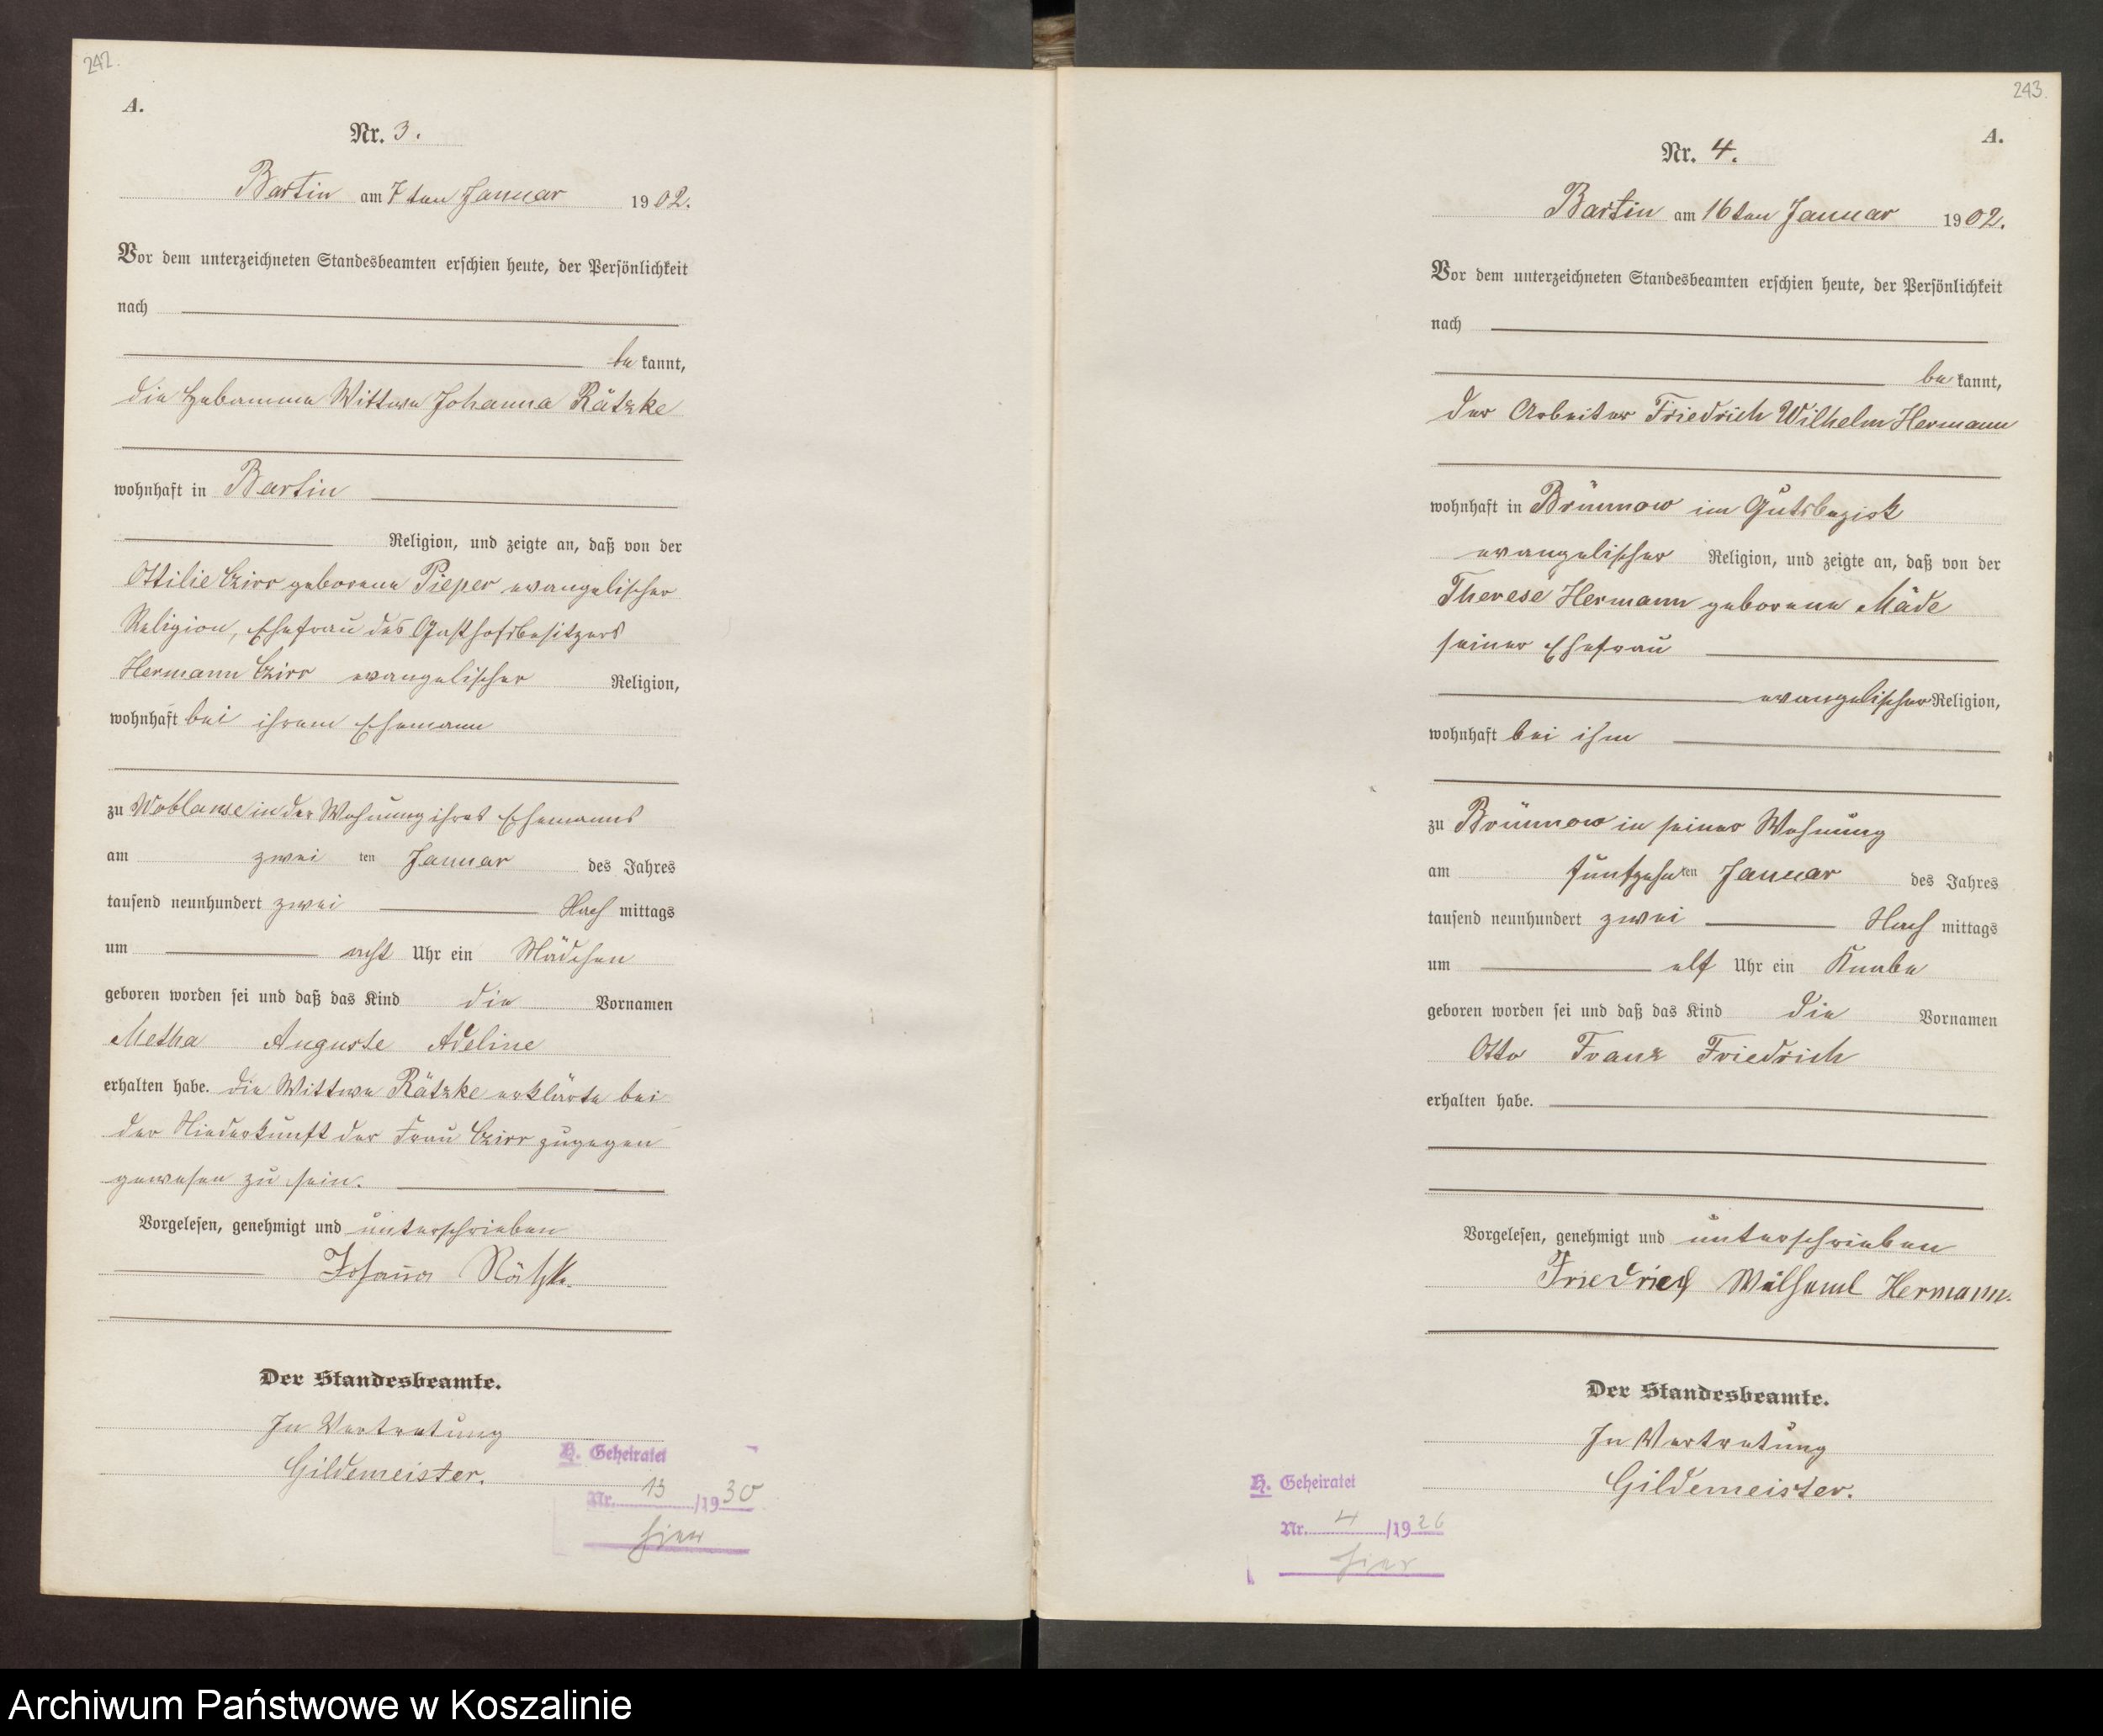 242.
A.
Nr. 3.
Bartin am 7ten Januar 1902.
Vor dem unterzeichneten Standesbeamten erschien heute, der Persönlichkeit
nach
bekannt,
die Hebamme Wittwe Johanna Rätzke
wohnhaft in Bartin
Religion, und zeigte an, daß von der
Ottilie Czirr geborene Pieper evangelischer
Religion, Ehefrau des Gasthofsbesitzers
Hermann Czirr evangelischer Religion,
wohnhaft bei ihrem Ehemann
zu Woblanse in der Wohnung ihres Ehemanns
am zwei ten Januar des Jahres
tausend neunhundert zwei Nachmittags
um acht Uhr ein Mädchen
geboren worden sei und daß das Kind die Vornamen
Metha Auguste Adeline
erhalten habe. die Wittwe Rätzke erklärte bei
der Niederkunft der Frau Czirr zugegen
gewesen zu sein.
Vorgelesen, genehmigt und unterschrieben
Johanna Rätzke.
Der Standesbeamte.
In Vertretung
Gildemeister.
H. Geheiratet
Nr. 13 /1930
hier
243.
A.
Nr. 4.
Bartin am 16ten Januar 1902.
Vor dem unterzeichneten Standesbeamten erschien heute, der Persönlichkeit
nach
bekannt,
der Arbeiter Friedrich Wilhelm Hermann
wohnhaft in Brünnow im Gutsbezirk
evangelischer Religion, und zeigte an, daß von der
Therese Hermann geborene Mäde
seiner Ehefrau
evangelischer Religion,
wohnhaft bei ihm
zu Brünnow in seiner Wohnung
am fünfzehnten Januar des Jahres
tausend neunhundert zwei Nachmittags
um elf Uhr ein Knabe
geboren worden sei und daß das Kind die Vornamen
Otto Franz Friedrich
erhalten habe.
Vorgelesen, genehmigt und unterschrieben
Friedrich Wilheml Hermann.
Der Standesbeamte.
In Vertretung
Gildemeister.
H. Geheiratet
Nr. 4 /1926
hier
Archiwum Państwowe w Koszalinie